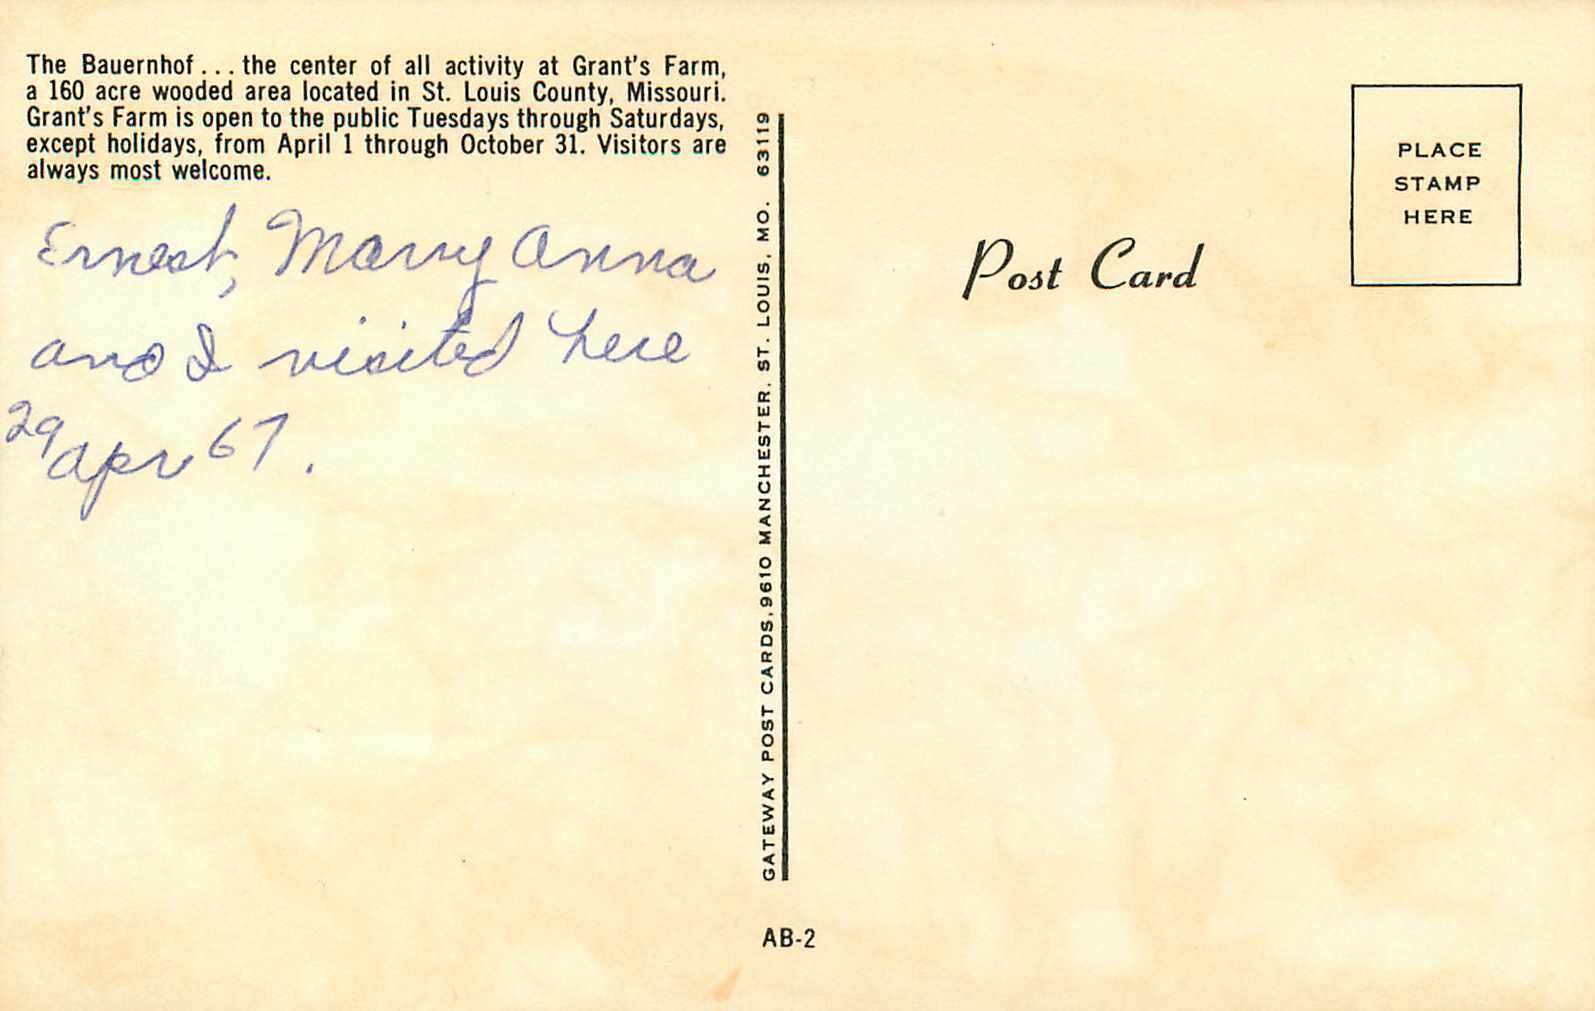 The Bauernhof... the center of all activity at Grant's Farm,
a 160 acre wooded area located in St. Louis County, Missouri.
Grant's Farm is open to the public Tuesdays through Saturdays,
except holidays, from April 1 through October 31. Visitors are
always most welcome.
Ernest, Mary Anna
and I visited here
29 Apr 67.
GATEWAY POST CARDS, 9610 MANCHESTER, ST. LOUIS, MO. 63119
AB-2
Post Card
PLACE
STAMP
HERE